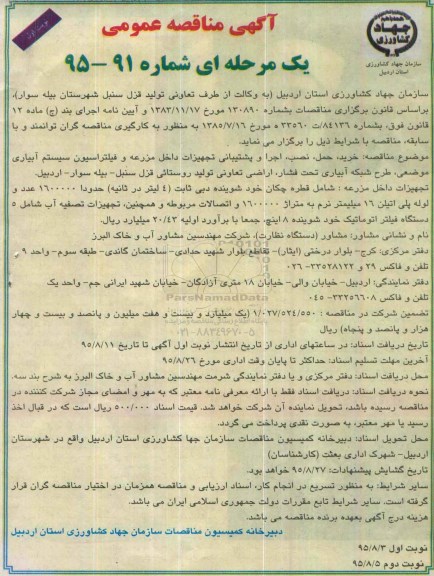 آگهی مناقصه عمومی
یک مرحله ای شماره ۹۱ –۹۵
جهاد کشاورزی
سازمان جهاد کشاورزی
استان اردبیل
سازمان جهاد کشاورزی استان اردبیل (به وکالت از طرف تعاونی تولید قزل سنبل شهرستان بیله سوار)،
براساس قانون برگزاری مناقصات بشماره ۱۳۰۸۹۰ مورخ ۱۳۸۳/۱۱/۱۷ و آیین نامه اجرای بند (ج) ماده ۱۲
قانون فوق، بشماره ۸۴۱۳۶/ت ۳۳۵۶۰ ه مورخ ۱۳۸۵/۷/۱۶ به منظور به کارگیری مناقصه گران توانمند و با
سابقه، مناقصه با شرایط ذیل را برگزار می نماید.
موضوع مناقصه: خرید، حمل، نصب، اجرا و پشتیبانی تجهیزات داخل مزرعه و فیلتراسیون سیستم آبیاری
موضعی، طرح شبکه آبیاری تحت فشار، اراضی تعاونی تولید روستائی قزل سنبل– بیله سوار– اردبیل.
تجهیزات داخل مزرعه : شامل قطره چکان خود شوینده دبی ثابت (۴ لیتر در ثانیه) حدودا ۱۶۰۰۰۰۰ عدد و
لوله پلی اتیلن ۱۶ میلیمتر نرم به متراژ ۱۶۰۰۰۰۰ و اتصالات مربوطه و همچنین، تجهیزات تصفیه آب شامل ۵
دستگاه فیلتر اتوماتیک خود شوینده ۸ اینچ، جمعا با برآورد اولیه ۲۰/۴۳ میلیارد ریال.
نام و نشانی مشاور: مشاور (دستگاه نظارت)، شرکت مهندسین مشاور آب و خاک البرز
دفتر مرکزی: کرج– بلوار درختی (ایثار)– تقاطع بلوار شهید حدادی– ساختمان گاندی– طبقه سوم– واحد ۹
تلفن و فاکس ۲۹ و ۳۳۵۲۸۱۲۲– ۰۲۶
دفتر نمایندگی: اردبیل– خیابان والی– خیابان ۱۸ متری آزادگان– خیابان شهید ایرانی جم– واحد یک
تلفن و فاکس ۳۳۲۵۶۶۰۸– ۰۴۵
تضمین شرکت در مناقصه : ۱/۰۲۷/۵۲۴/۵۵۰ (یک میلیارد و بیست و هفت میلیون و پانصد و بیست و چهار
هزار و پانصد و پنجاه) ریال
تاریخ دریافت اسناد: در ساعتهای اداری از تاریخ انتشار نوبت اول آگهی تا تاریخ ۹۵/۸/۱۱
آخرین مهلت تسلیم اسناد: حداکثر تا پایان وقت اداری مورخ ۹۵/۸/۲۶
محل دریافت اسناد: دفتر مرکزی و یا دفتر نمایندگی شرمت مهندسین مشاور آب و خاک البرز به شرح بند سه.
نحوه دریافت اسناد: دریافت اسناد فقط با ارائه معرفی نامه معتبر که به مهر و امضای مجاز شرکت کننده در
مناقصه رسیده باشد، تحویل نماینده آن شرکت خواهد شد. قیمت اسناد ۵۰۰/۰۰۰ ریال است که در قبال اخذ
رسید یا مهر معتبر، به صورت نقدی پرداخت می گردد.
محل تحویل اسناد: دبیرخانه کمیسیون مناقصات سازمان جها کشاورزی استان اردبیل واقع در شهرستان
اردبیل– شهرک اداری بعثت (کارشناسان)
تاریخ گشایش پیشنهادات: ۹۵/۸/۲۷ خواهد بود.
سایر شرایط: به منظور تسریع در انجام کار، اسناد ارزیابی و مناقصه همزمان در اختیار مناقصه گران قرار
گرفته است. سایر شرایط تابع مقررات دولت جمهوری اسلامی ایران می باشد.
هزینه درج آگهی بعهده برنده مناقصه می باشد.
دبیرخانه کمیسیون مناقصات سازمان جهاد کشاورزی استان اردبیل
نوبت اول ۹۵/۸/۳
نوبت دوم ۹۵/۸/۵
ParsNamadData
۰۲۱-۸۸۳۴۹۶۷۰-۵